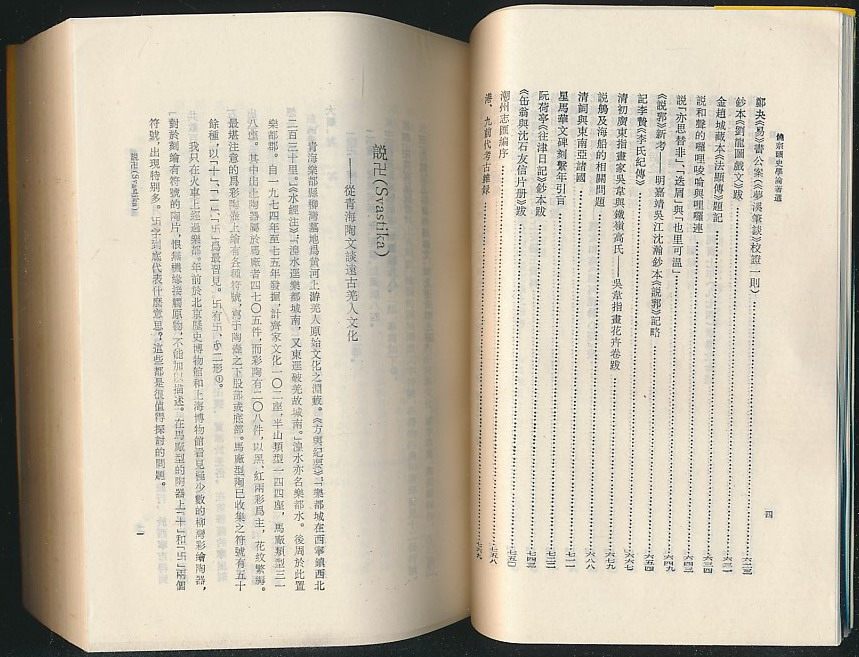 饒宗頤史學論著選
鄭央《易》書公案(《夢溪筆談》校證一則)……六二三
鈔本《劉龍圖戲文》跋……六三一
金趙城藏本《法顯傳》題記……六三四
說和聲的囉哩唛嗬與哩囉連……六四三
說「亦思替非」、「迭屑」與「也里可溫」……六四九
《說郛》新考——明嘉靖吳江沈瀚鈔本《說郛》記略……六五四
記李贄《李氏紀傳》……六六三
清初廣東指畫家吳韋與鐵嶺高氏——吳韋指畫花卉卷跋……六六七
說鷁及海船的相關問題……六七九
清詞與東南亞諸國……六八八
星馬華文碑刻繫年引言……七一一
阮荷亭《往津日記》鈔本跋……七三二
《缶翁與沈石友信片册》跋……七四三
潮州志匯編序……七五〇
港、九前代考古雜錄……七五八
四
說卍(Svastika)
——從青海陶文談遠古羌人文化
青海樂都縣柳灣墓地爲黃河上游羌人原始文化之淵藪。《方輿紀要》:「樂都城在西寧鎮西北
二百三十里。」《水經注》:「湟水逕樂都城南,又東逕破羌故城南。」湟水亦名樂都水。後周於此置
樂都郡。自一九七四年至七五年發掘,計齊家文化一〇二座,半山類型一四四座,馬廠類型三一
八座。其中出土陶器屬於馬廠者四七〇五件,而彩陶有二〇八件,以黑、紅兩彩爲主,花紋繁縟。
最堪注意的爲彩陶壺上繪有各種符號,寫于陶壺之下股部或底部。馬廠型陶已收集之符號有五十
餘種,以「十」、「一」、「卐」爲最習見。卐有卐、卍二形①。
我只在火車上經過樂都。年前於北京歷史博物館和上海博物館看見極少數的柳灣彩繪陶器,
對於刻繪有符號的陶片,恨無機緣接觸原物,不能加以描述。在馬廠型的陶器上「十」和「卐」兩個
符號,出現特別多。卐字到底代表什麽意思?這些都是很值得探討的問題。
說卍(Svastika)
一